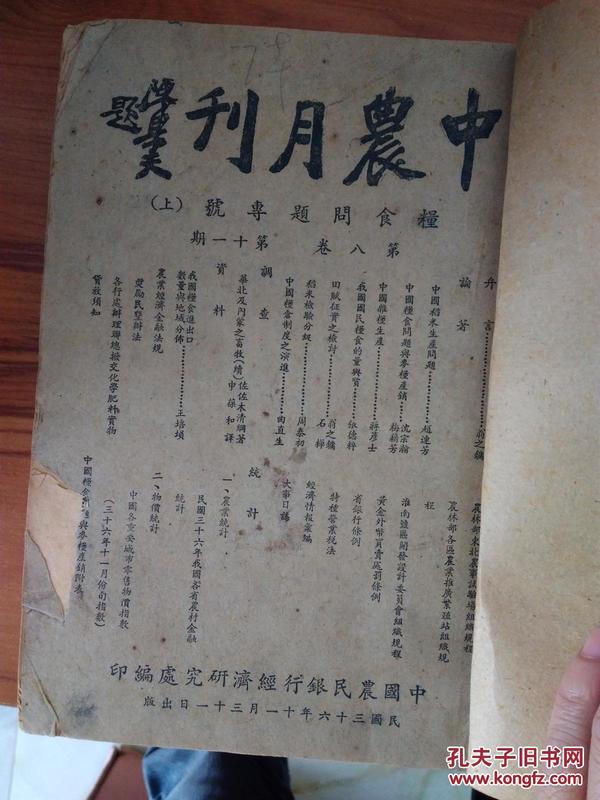 中農月刊
題
糧食問題專號（上）
第八卷　第十一期
弁言………翁之鏞
論著
中國稻米生產問題………趙連芳
中國糧食問題與麥糧產銷………沈宗瀚
中國雜糧生產………蔣彥士
我國國民糧食的量與質
田賦征實之檢討………翁之鏞
稻米檢驗分級………周泰初
中國糧倉制度之演進………田直生
調查
華北及內蒙之畜牧（續）佐佐木清綱著
申葆和譯
資料
我國糧食進出口
數量與地域分佈………王培塤
農業經濟金融法規
獎勵民墾辦法
各行處辦理聯總撥交化學肥料實物
貸放須知
農林部東北農事試驗場組織規程
農林部各區農業推廣繁殖站組織規
程
淮南鹽區開發設計委員會組織規程
黃金外幣買賣處罰條例
省銀行條例
特種營業稅法
經濟情報彙編
大事日誌
統計
一、農業統計
民國三十六年我國各省農村金融
統計
二、物價統計
中國各重要城市零售物價指數
（三十六年十一月份旬指數）
中國糧食問題與麥糧產銷附表
中國農民銀行經濟研究處編印
民國三十六年十一月三十一日出版
孔夫子旧书网
www.kongfz.com